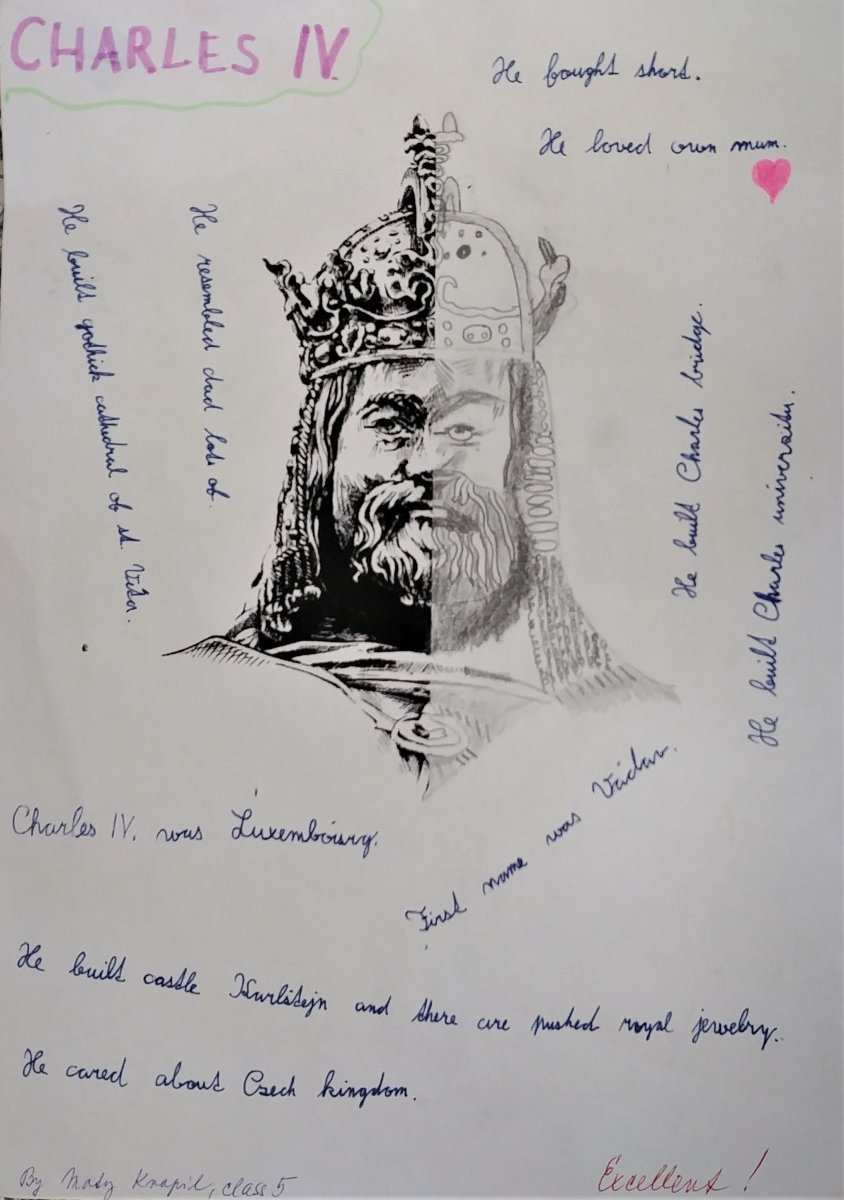 CHARLES IV.
He bought short.
He loved own mum.
He built gothick cathedral of st. Víta.
He resembled dad lots of.
He built Charles bridge.
He built Charles university.
Charles IV. was Luxembourg.
First name was Václav.
He built castle Karlštejn and there are pushed royal jewelry.
He cared about Czech kingdom.
By Knapil, class 5
Excellent!